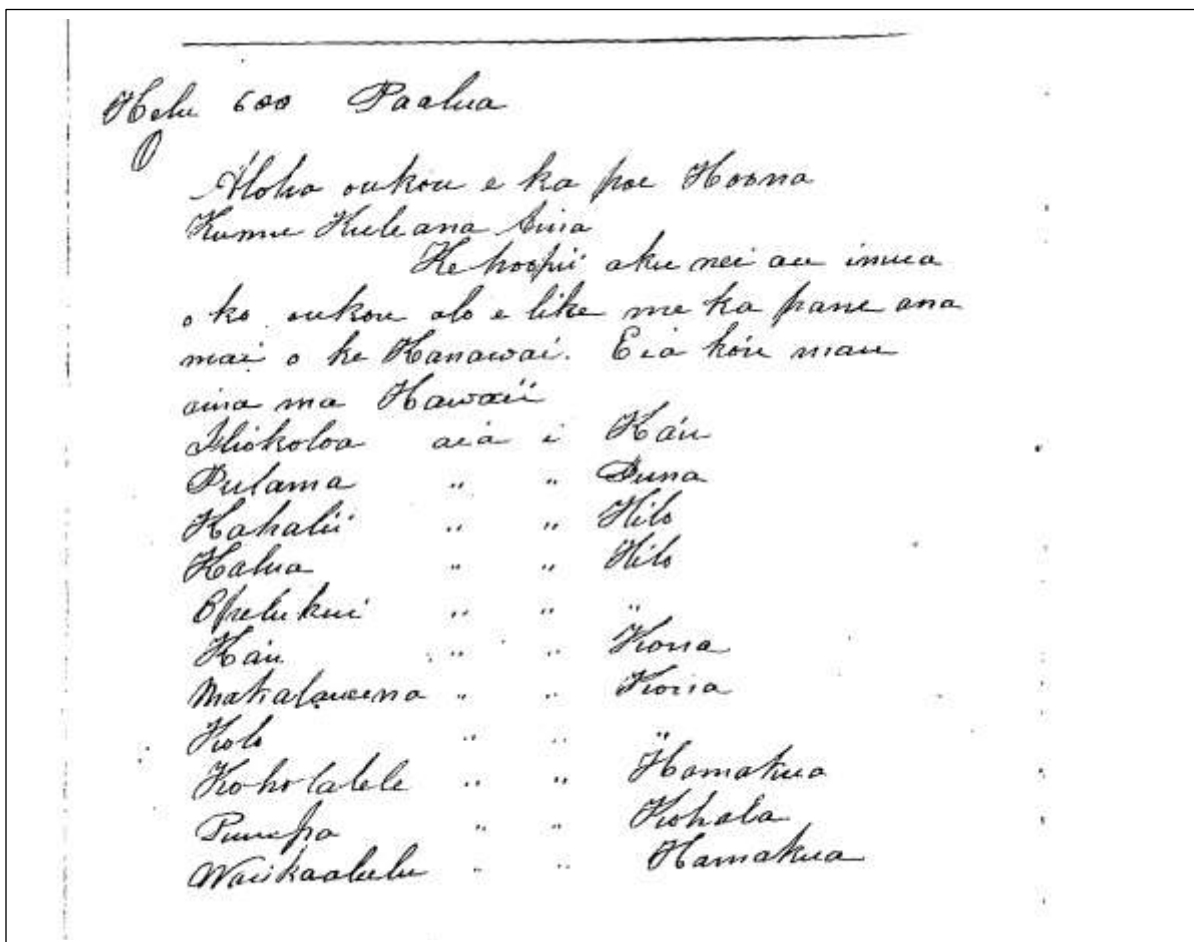 Helu 600 Paalua
Aloha oukou e ka poe Hoona
Kumu Kuleana Aina
Ke hoopii aku nei au imua
o ko oukou alo e like me ka pane ana
mai o ke Kanawai. Eia kóu mau
aina ma Hawaii
Iliokoloa aia i Káu
Pulama " " Puna
Kahalii " " Hilo
Kalua " " Hilo
Opelukui " " "
Káu " " Kona
Makalawena " " Kona
Kolo " " "
Koholalele " " Hamakua
Puuepa " " Kohala
Waiikaalulu " " Hamakua